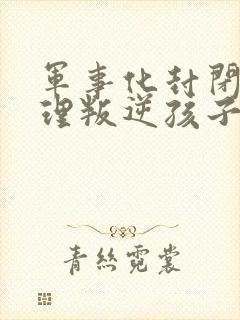 軍事化封閉
理叛逆孩子
青絲霓裳